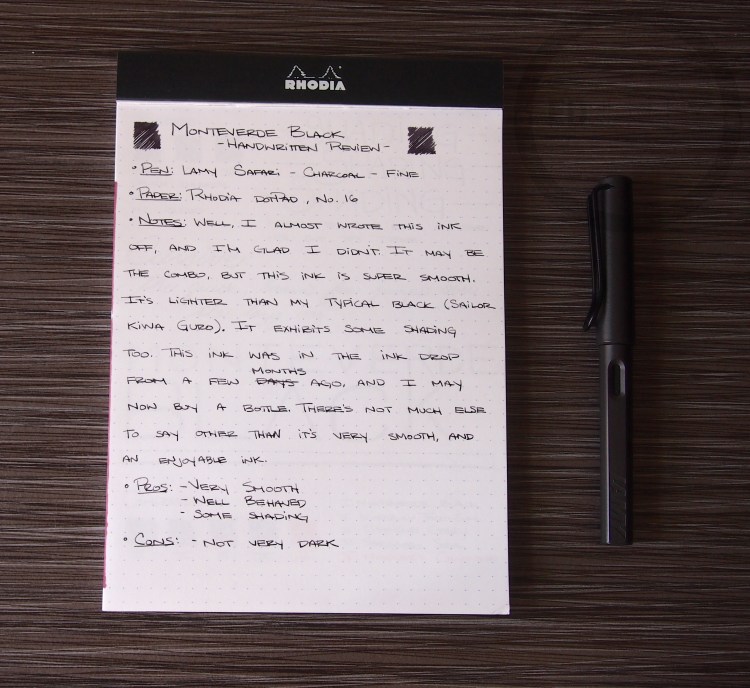 RHODIA
MONTEVERDE BLACK
- HANDWRITTEN REVIEW -
• PEN: LAMY SAFARI - CHARCOAL - FINE
• PAPER: RHODIA DOTPAD, NO. 16
• NOTES: WELL, I ALMOST WROTE THIS INK
OFF, AND I'M GLAD I DIDN'T. IT MAY BE
THE COMBO, BUT THIS INK IS SUPER SMOOTH.
IT'S LIGHTER THAN MY TYPICAL BLACK (SAILOR
KIWA GURO). IT EXHIBITS SOME SHADING
TOO. THIS INK WAS IN THE INK DROP
MONTHS
FROM A FEW DAYS AGO, AND I MAY
NOW BUY A BOTTLE. THERE'S NOT MUCH ELSE
TO SAY OTHER THAN IT'S VERY SMOOTH, AND
AN ENJOYABLE INK.
• PROS: - VERY SMOOTH
- WELL BEHAVED
- SOME SHADING
• CONS: - NOT VERY DARK